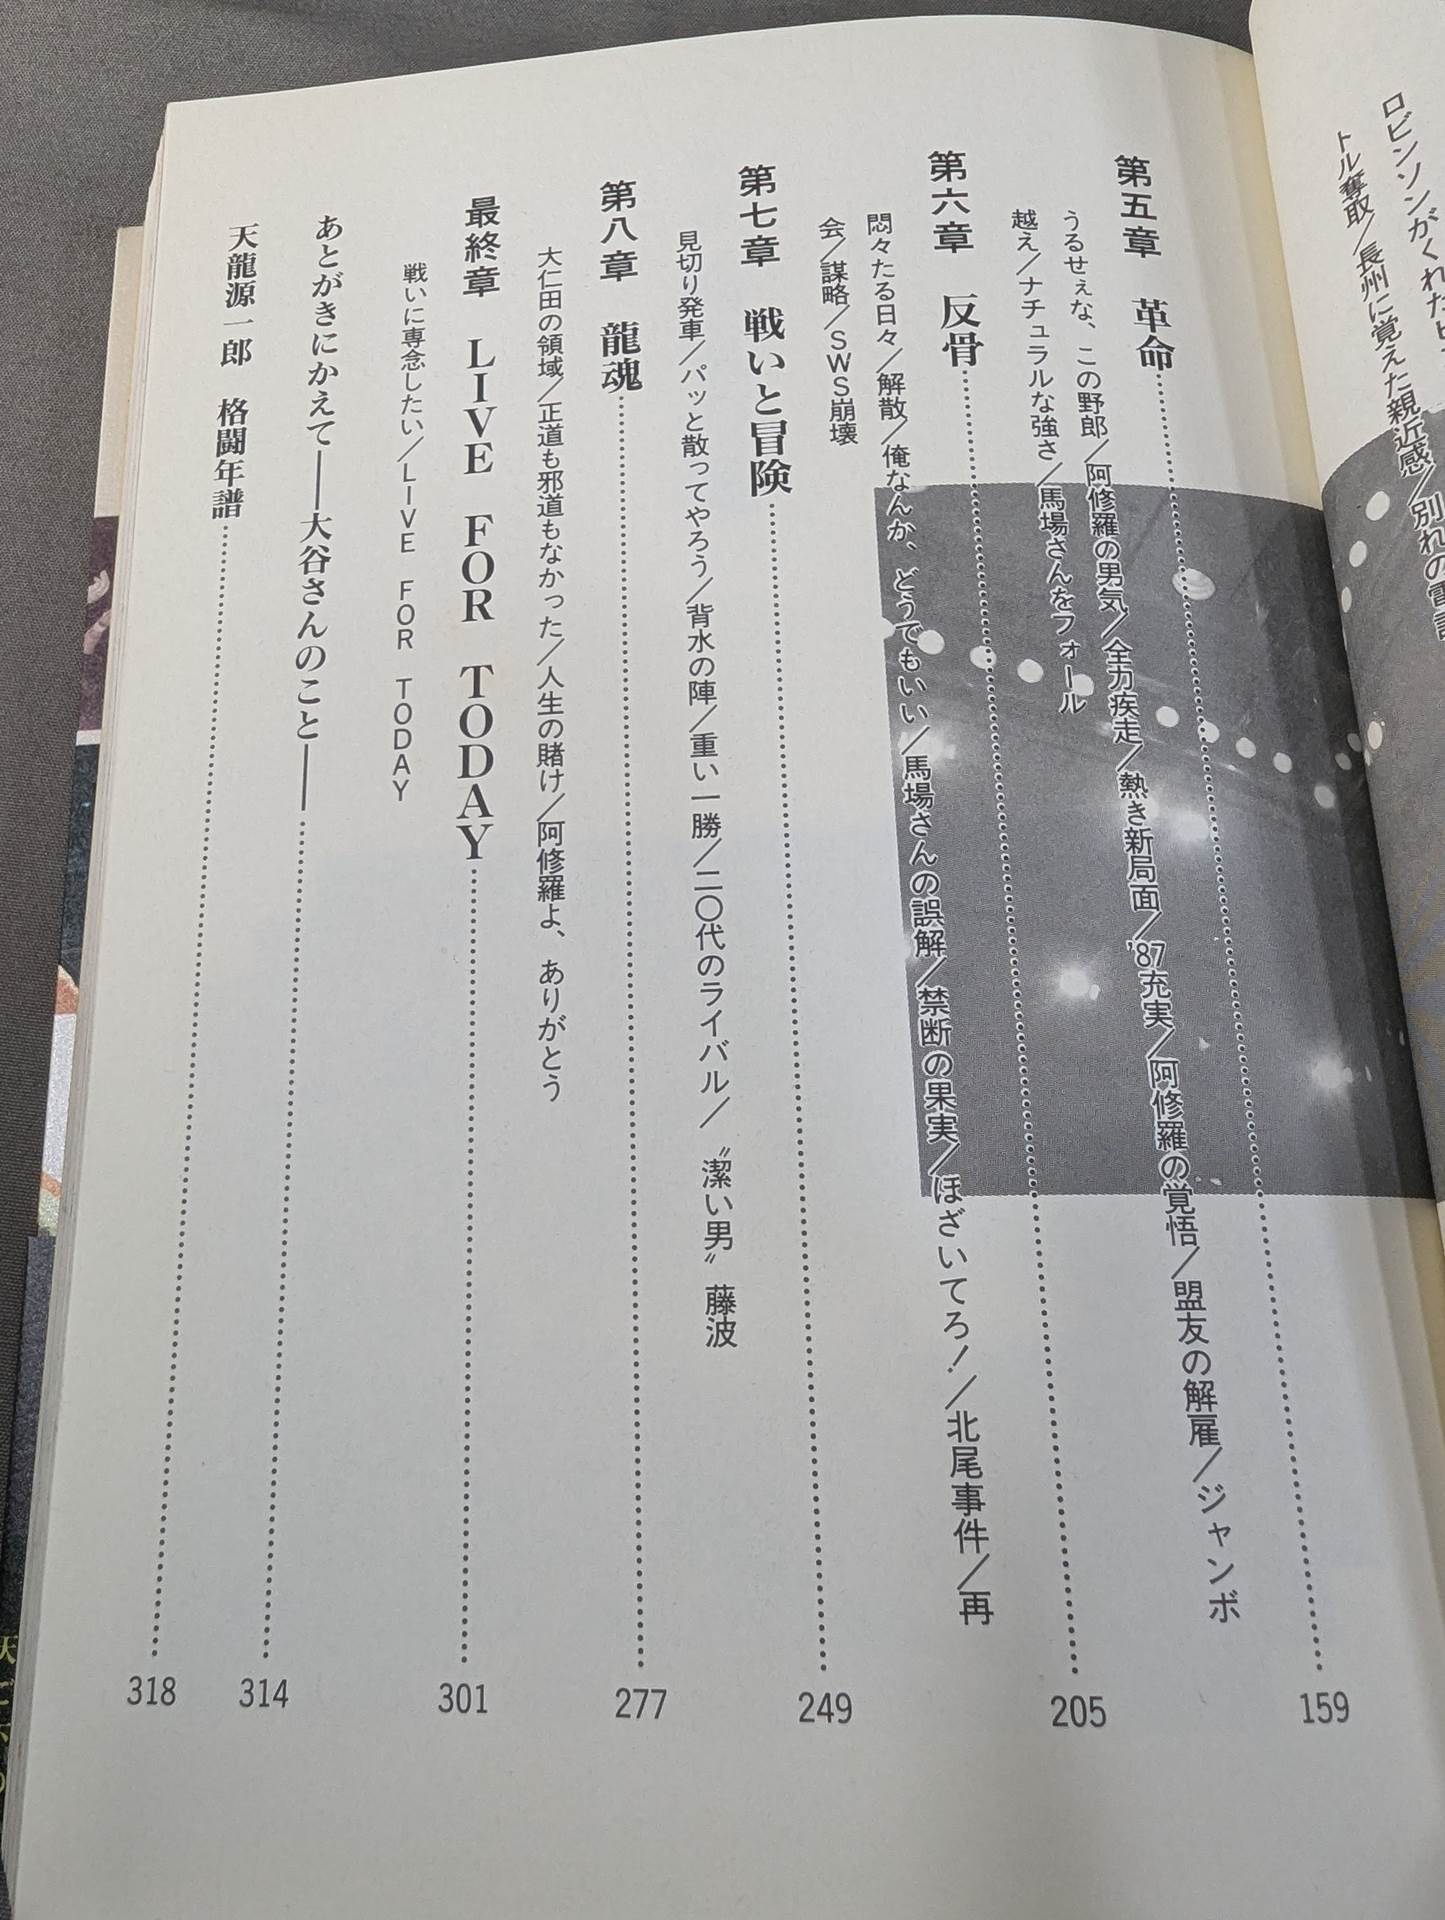 ロビンソンがくれた
トル奪取／長州に覚えた親近感／別れの電話
第五章　革命……159
うるせぇな、この野郎／阿修羅の男気／全力疾走／熱き新局面／'87充実／阿修羅の覚悟／盟友の解雇／ジャンボ
越え／ナチュラルな強さ／馬場さんをフォール
第六章　反骨……205
悶々たる日々／解散／俺なんか、どうでもいい／馬場さんの誤解／禁断の果実／ほざいてろ！／北尾事件／再
会／謀略／SWS崩壊
第七章　戦いと冒険……249
見切り発車／パッと散ってやろう／背水の陣／重い一勝／二〇代のライバル／〝潔い男〟藤波
第八章　龍魂……277
大仁田の領域／正道も邪道もなかった／人生の賭け／阿修羅よ、ありがとう
最終章　LIVE FOR TODAY……301
戦いに専念したい／LIVE FOR TODAY
あとがきにかえて――大谷さんのこと――……314
天龍源一郎　格闘年譜……318